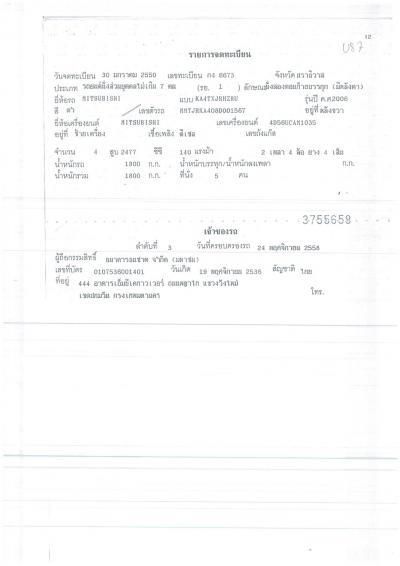 12
U87
รายการจดทะเบียน
วันจดทะเบียน 30 มกราคม 2550 เลขทะเบียน กง 6673 จังหวัด นราธิวาส
ประเภท รถยนต์นั่งส่วนบุคคลไม่เกิน 7 คน (รย. 1 ) ลักษณะ นั่งสองตอนท้ายบรรทุก (มีหลังคา)
ยี่ห้อรถ MITSUBISHI แบบ KA4TXJRHZRU รุ่นปี ค.ศ2006
สี ดำ เลขตัวรถ MMTJRKA408D001567 อยู่ที่
ยี่ห้อเครื่องยนต์ MITSUBISHI เลขเครื่องยนต์ 4D56UCAN1035
อยู่ที่ ซ้ายเครื่อง เชื้อเพลิง ดีเซล เลขถังแก๊ส
จำนวน 4 สูบ 2477 ซีซี 140 แรงม้า 2 เพลา 4 ล้อ ยาง 4 เส้น
น้ำหนักรถ 1800 ก.ก. น้ำหนักบรรทุก/น้ำหนักลงเพลา ก.ก.
น้ำหนักรวม 1800 ก.ก. ที่นั่ง 5 คน
3755659
เจ้าของรถ
ลำดับที่ 3 วันที่ครอบครองรถ 24 พฤศจิกายน 2558
ผู้ถือกรรมสิทธิ์ ธนาคารธนชาต จำกัด (มหาชน)
เลขที่บัตร 0107536001401 วันเกิด 19 พฤศจิกายน 2536 สัญชาติ ไทย
ที่อยู่ 444 อาคารเอ็มบีเคทาวเวอร์ ถนนพญาไท แขวงวังใหม่
เขตปทุมวัน กรุงเทพมหานคร โทร.